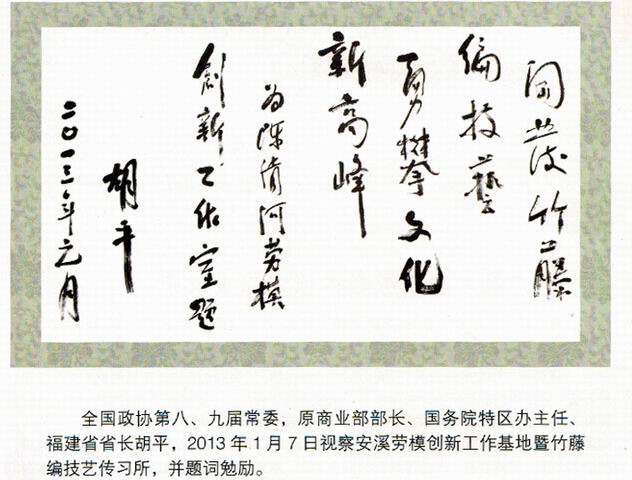 開发竹藤
编技艺
勇攀文化
新高峰
为陈清河劳模
创新工作室题
胡平
二〇一三年元月
全国政协第八、九届常委，原商业部部长、国务院特区办主任、
福建省省长胡平，2013年1月7日视察安溪劳模创新工作基地暨竹藤
编技艺传习所，并题词勉励。